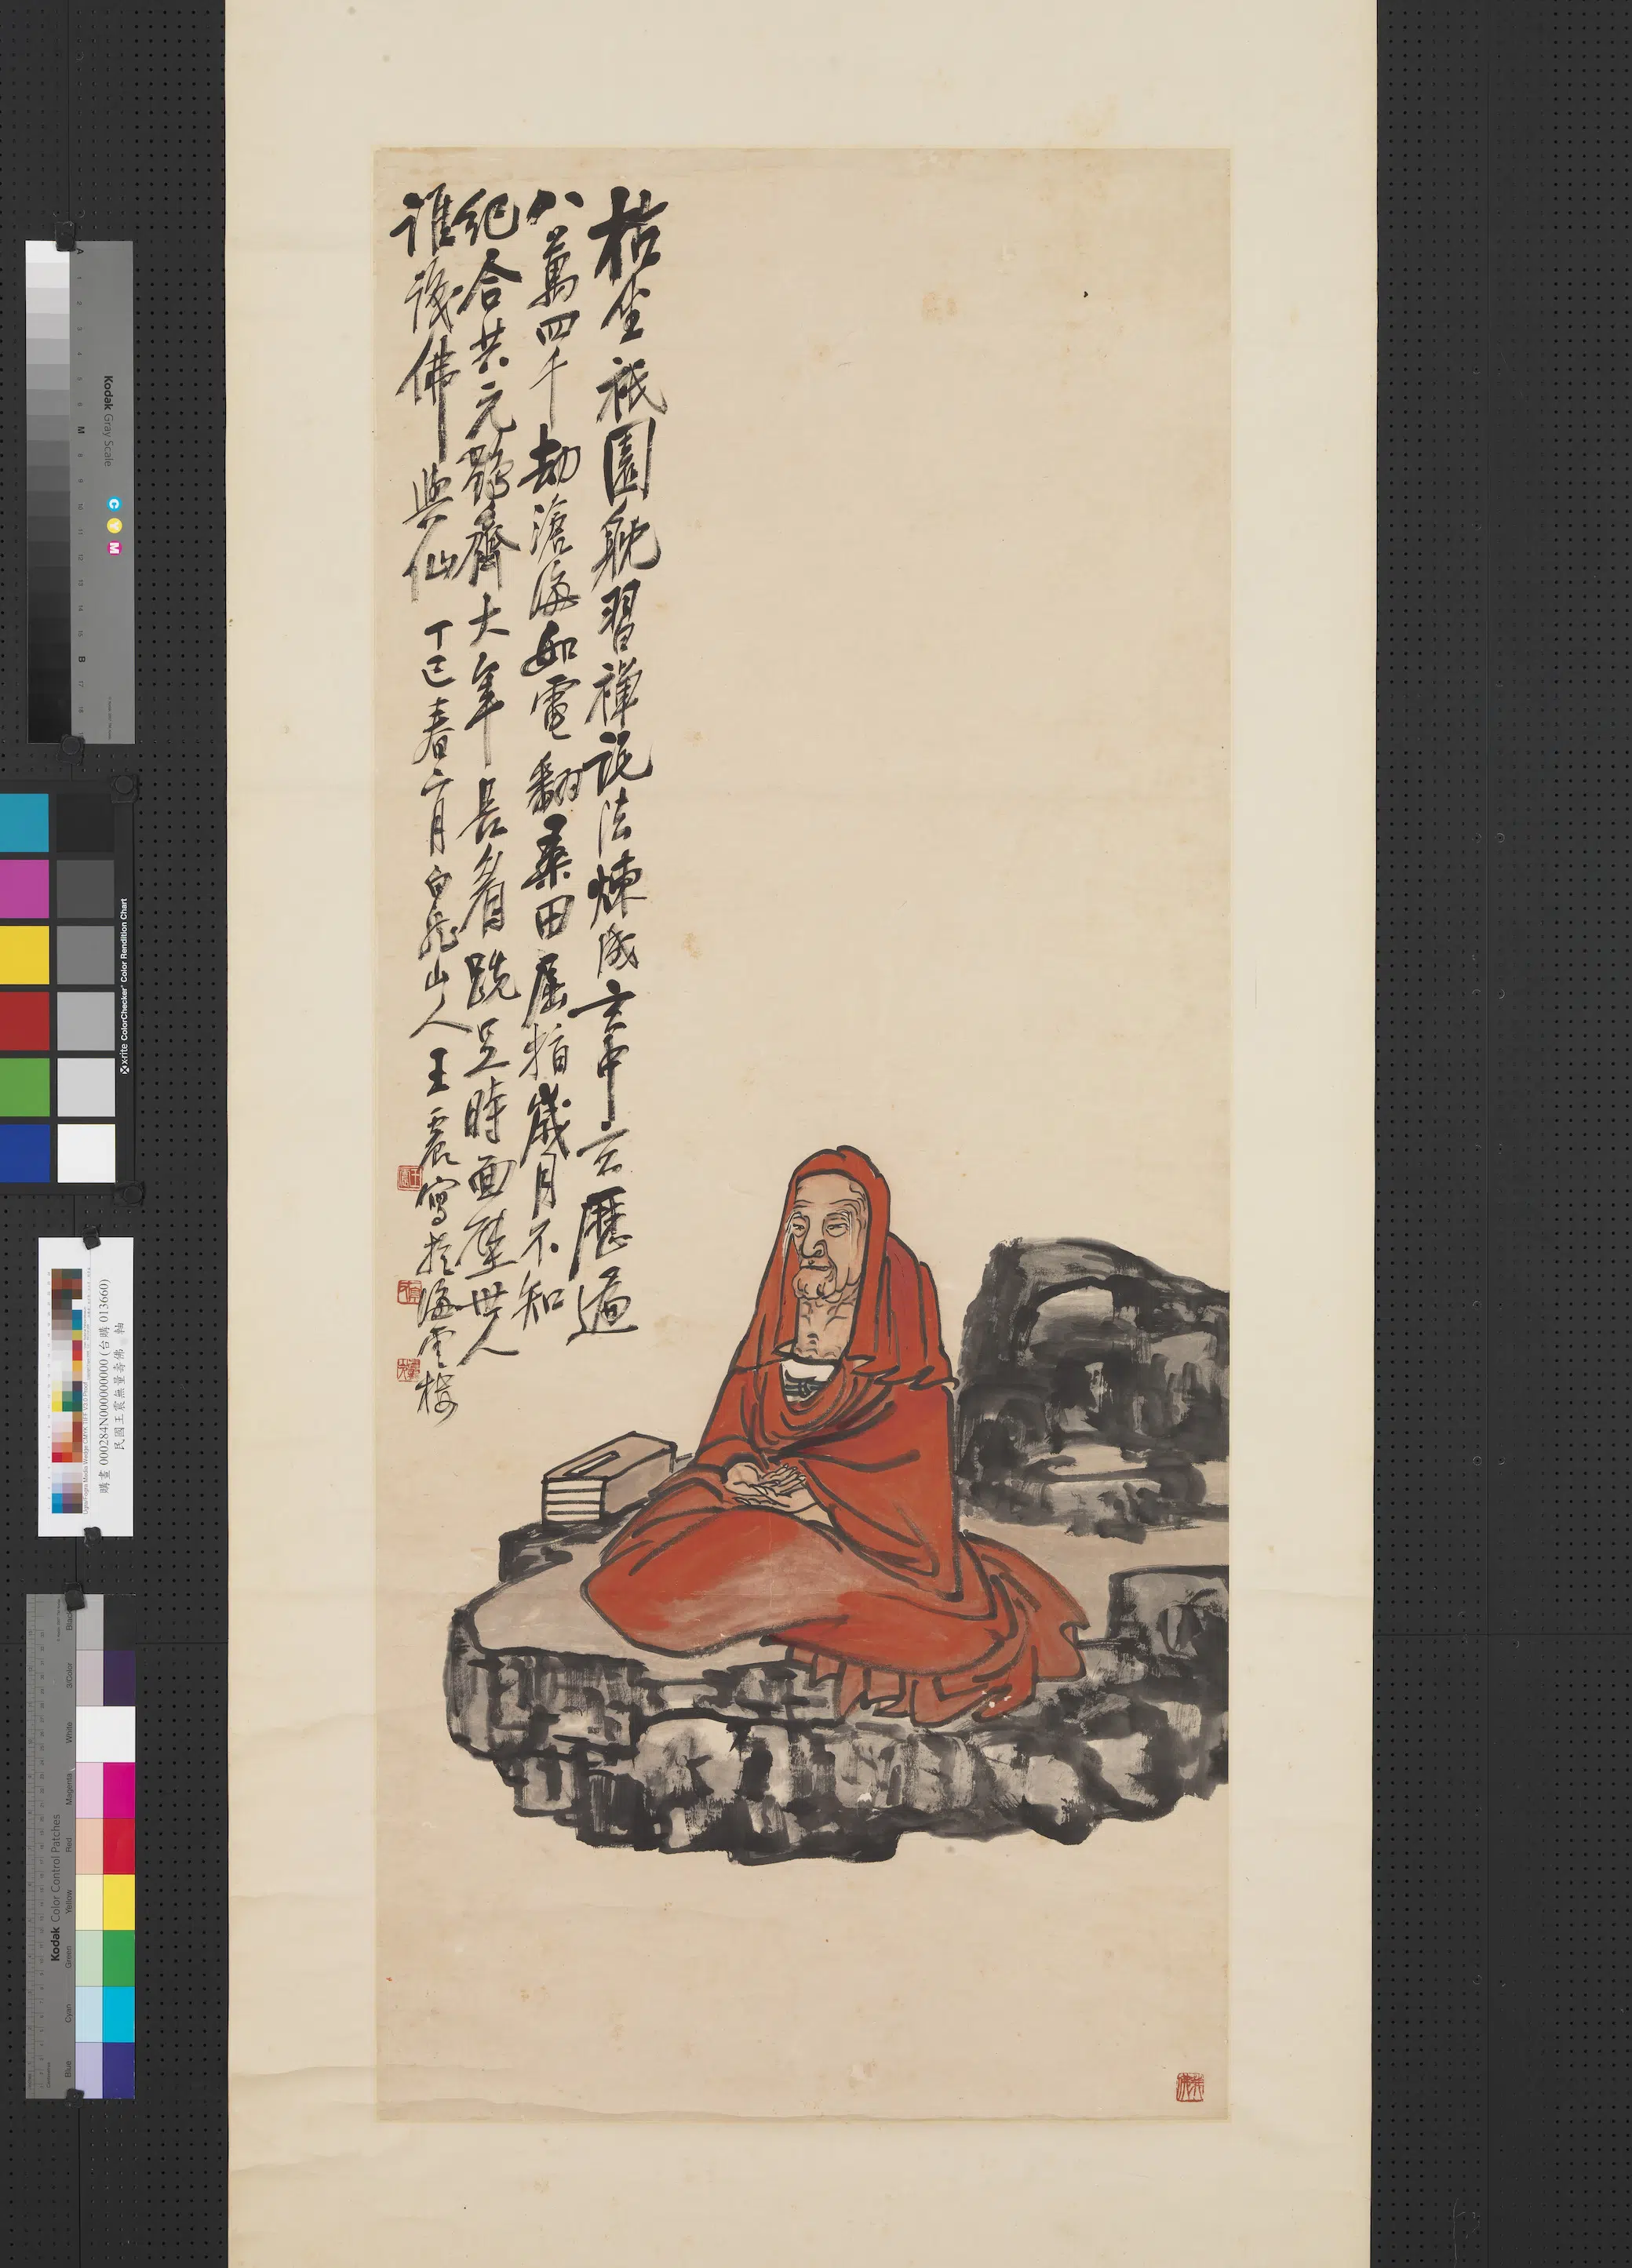 枯坐祇園躭習禪說法煉成玄中玄歷遍
八萬四千劫滄海如電翻桑田屈指歲月不知
紀合共元鶴齊大年長看跣足時面壁世人
誰識佛與仙 丁巳春二月白龍山人王震寫於海雲樓
Kodak Gray Scale
C Y M
A
M
B
x-rite ColorChecker® Color Rendition Chart
購畫 000284N000000000 (台購 013660)
民國王震無量壽佛 軸
Kodak Color Control Patches
Blue
Cyan
Green
Yellow
Red
Magenta
White
3/Color
Black